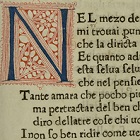 NEL mezo d
mi trouai pun
che la diricta
Et quanto ad
esta selua selua
che nel pensie
Tante amara che pocho piu
ma per tractar del ben c
diro dellatre cose chi u
I non so ben ridir come